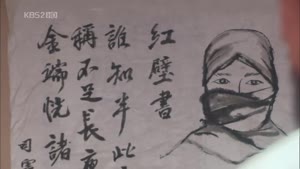 KBS2
紅壁書
誰知半此
稱不足長夜
金端恍諸
司憲